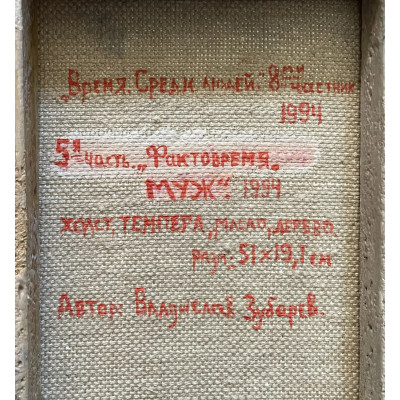 „Время. Среди людей." 8ми частник
1994
5я часть. „Фактовремя.
МУЖ". 1994
холст, темпера, масло, дерево
разм.: 51 x 19,1 см
Автор: Владислав Зубарев.